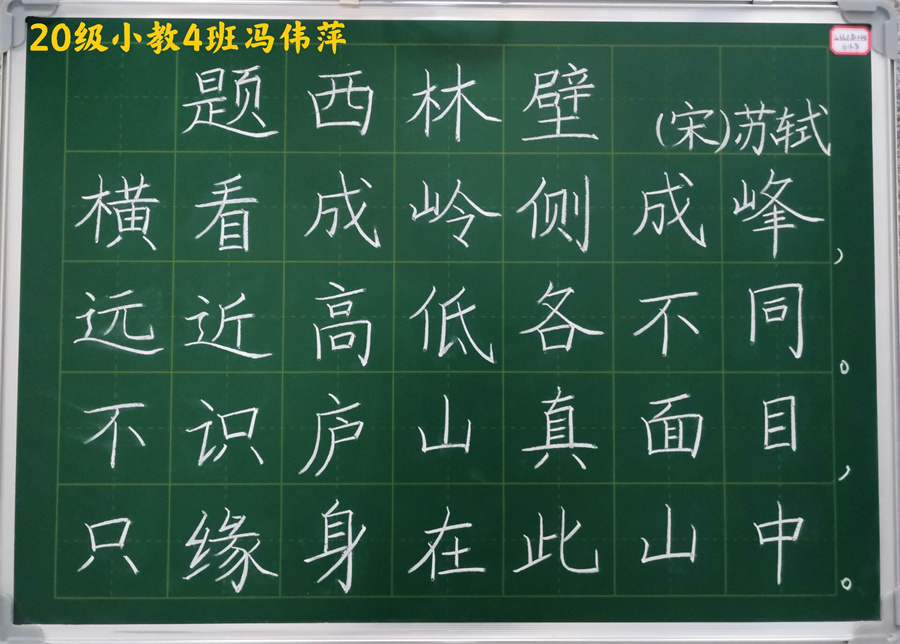 20级小教4班冯伟萍
题西林壁
(宋)苏轼
横看成岭侧成峰,
远近高低各不同。
不识庐山真面目,
只缘身在此山中。